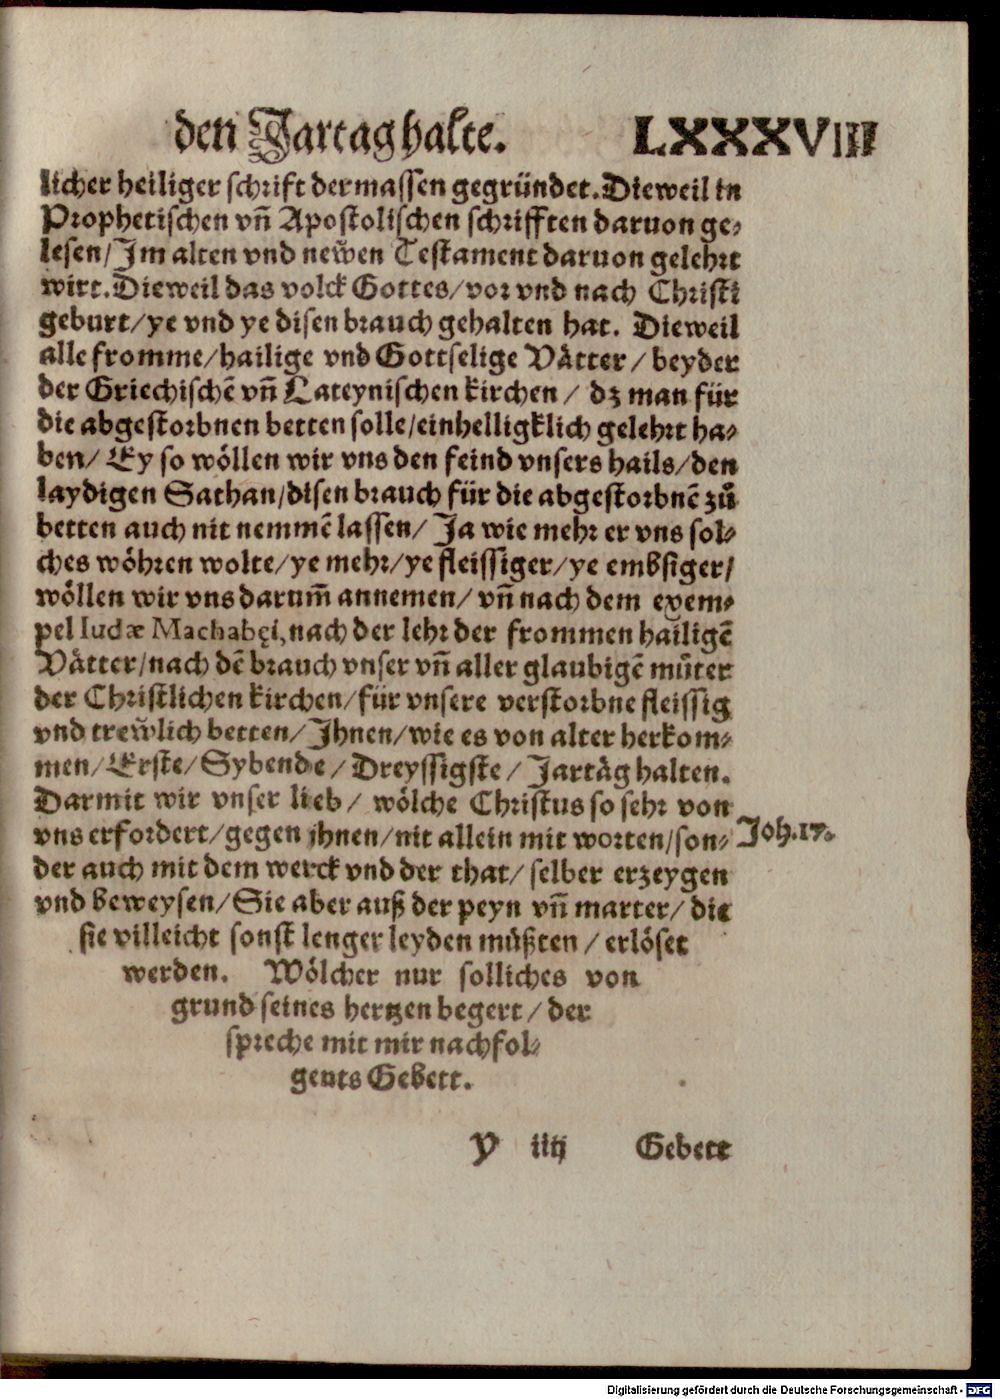 den Jartag halte. LXXXVIIII
licher heiliger schrift dermassen gegründet. Dieweil in
Prophetischen vñ Apostolischen schrifften daruon ge-
lesen/ Im alten vnd newen Testament daruon gelehrt
wirt. Dieweil das volck Gottes/ vor vnd nach Christi
geburt/ ye vnd ye disen brauch gehalten hat. Dieweil
alle fromme/ hailige vnd Gottselige Vaͤtter/ beyder
der Griechischẽ vñ Lateynischen kirchen/ dz man für
die abgestorbnen betten solle/ einhelligklich gelehrt ha-
ben/ Ey so woͤllen wir vns den feind vnsers hails/ den
laydigen Sathan/ disen brauch für die abgestorbnẽ zuͦ
betten auch nit nemmẽ lassen/ Ja wie mehr er vns sol-
ches woͤhren wolte/ ye mehr/ ye fleissiger/ ye embsiger/
woͤllen wir vns darum̃ annemen/ vñ nach dem exem-
pel Iudæ Machabęi, nach der lehr der frommen hailigẽ
Vaͤtter/ nach dẽ brauch vnser vñ aller glaubigẽ muͦter
der Christlichen kirchen/ für vnsere verstorbne fleissig
vnd trewlich betten/ Ihnen/ wie es von alter herkom-
men/ Erste/ Sybende/ Dreyssigste/ Jartaͤg halten.
Darmit wir vnser lieb/ woͤlche Christus so sehr von
vns erfordert/ gegen jhnen/ nit allein mit worten/ son-
Joh. 17.
der auch mit dem werck vnd der that/ selber erzeygen
vnd beweysen/ Sie aber auß der peyn vñ marter/ die
sie villeicht sonst lenger leyden müßten/ erlöset
werden. Woͤlcher nur solliches von
grund seines hertzen begert/ der
spreche mit mir nachfol-
gents Gebett.
Y iiij Gebett
Digitalisierung gefördert durch die Deutsche Forschungsgemeinschaft - DFG